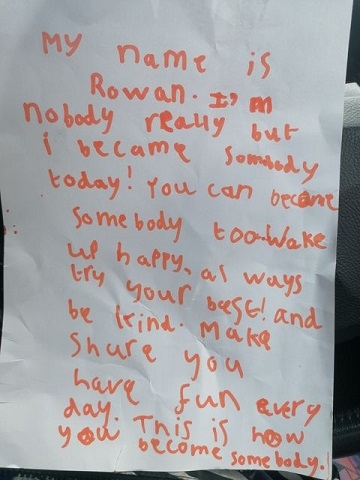 My name is
Rowan. I'm
nobody really but
i became sombody
today! You can become
somebody too. Wake
up happy, al ways
try your best! and
be kind. Make
Share you
have fun every
day. This is how
you become somebody.